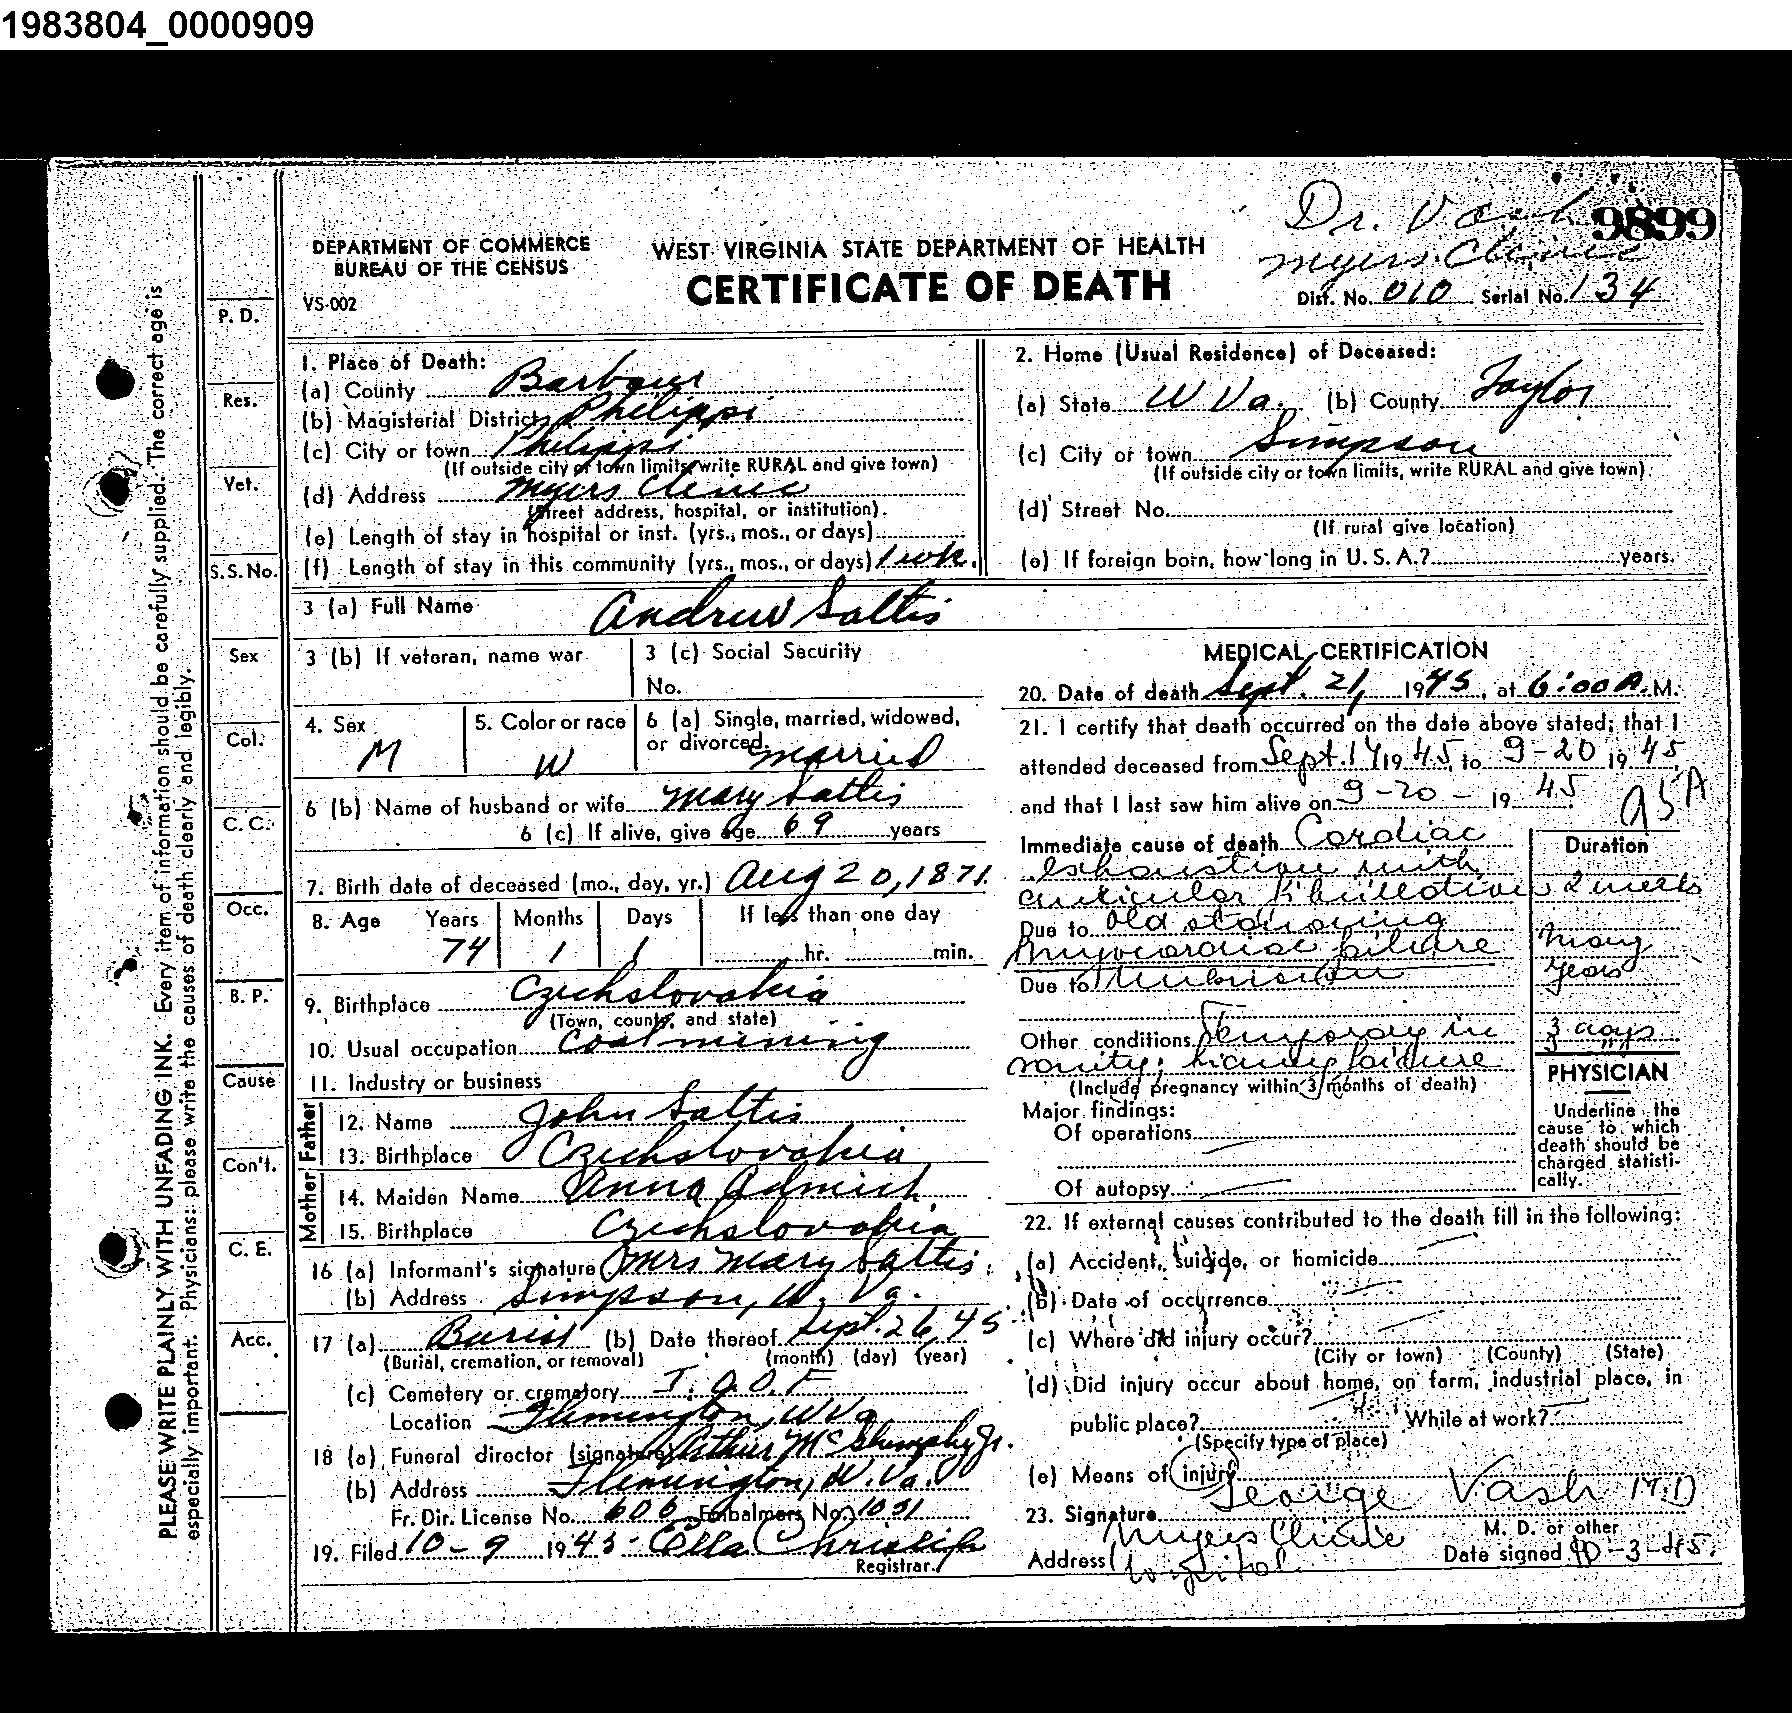 1983804_0000909
Dr. Vash
9899
Myers Clinic
DEPARTMENT OF COMMERCE
BUREAU OF THE CENSUS
VS-002
WEST VIRGINIA STATE DEPARTMENT OF HEALTH
CERTIFICATE OF DEATH
Dist. No. 010 Serial No. 134
PLEASE WRITE PLAINLY WITH UNFADING INK. Every item of information should be carefully supplied. The correct age is
especially important. Physicians: please write the causes of death clearly and legibly.
P. D.
Res.
Vet.
S.S. No.
Sex
Col.
C. C.
Occ.
B. P.
Cause
Con't.
C. E.
Acc.
1. Place of Death:
(a) County Barbour
(b) Magisterial District Philippi
(c) City or town Philippi
(If outside city or town limits, write RURAL and give town)
(d) Address Myers Clinic
(Street address, hospital, or institution).
(e) Length of stay in hospital or inst. (yrs., mos., or days)
(f) Length of stay in this community (yrs., mos., or days) 1 wk.
2. Home (Usual Residence) of Deceased:
(a) State W Va. (b) County Taylor
(c) City or town Simpson
(If outside city or town limits, write RURAL and give town)
(d) Street No.
(If rural give location)
(e) If foreign born, how long in U. S. A.? years.
3 (a) Full Name Andrew Saltis
3 (b) If veteran, name war
3 (c) Social Security
No.
4. Sex M
5. Color or race W
6 (a) Single, married, widowed,
or divorced. married
6 (b) Name of husband or wife Mary Saltis
6 (c) If alive, give age 69 years
7. Birth date of deceased (mo., day, yr.) Aug 20, 1871
8. Age Years Months Days If less than one day
74 1 1 hr. min.
9. Birthplace Czechslovakia
(Town, county, and state)
10. Usual occupation Coal mining
11. Industry or business
Father
12. Name John Saltis
13. Birthplace Czechslovakia
Mother
14. Maiden Name Anna
15. Birthplace Czechslovakia
16 (a) Informant's signature Mrs Mary Saltis
(b) Address Simpson, W. Va.
17 (a) Burial (b) Date thereof Sept. 26, 45
(Burial, cremation, or removal) (month) (day) (year)
(c) Cemetery or crematory I. O. O. F
Location Flemington, W Va
18 (a) Funeral director (signature) Arthur Jr.
(b) Address Flemington, W. Va.
Fr. Dir. License No. 606 Embalmers No. 1051
19. Filed 10-9 1945 Ella
Registrar.
MEDICAL CERTIFICATION
20. Date of death Sept. 21, 1945, at 6:00 A. M.
21. I certify that death occurred on the date above stated; that I
attended deceased from Sept. 14 1945, to 9-20 1945
and that I last saw him alive on 9-20- 1945.
95A
Immediate cause of death Cardiac
exhaustion with
auricular fibrillation
Due to Old standing
myocardiac failure
Due to
Other conditions Temporary in
sanity; kidney failure
(Include pregnancy within 3 months of death)
Major findings:
Of operations
Of autopsy
Duration
2 weeks
Many
years
3 days
PHYSICIAN
Underline the
cause to which
death should be
charged statisti-
cally.
22. If external causes contributed to the death fill in the following:
(a) Accident, suicide, or homicide
(b) Date of occurrence
(c) Where did injury occur?
(City or town) (County) (State)
(d) Did injury occur about home, on farm, industrial place, in
public place? While at work?
(Specify type of place)
(e) Means of injury
23. Signature George Vash M.D
M. D. or other
Address Myers Clinic
Hospital.
Date signed 10-3-45.